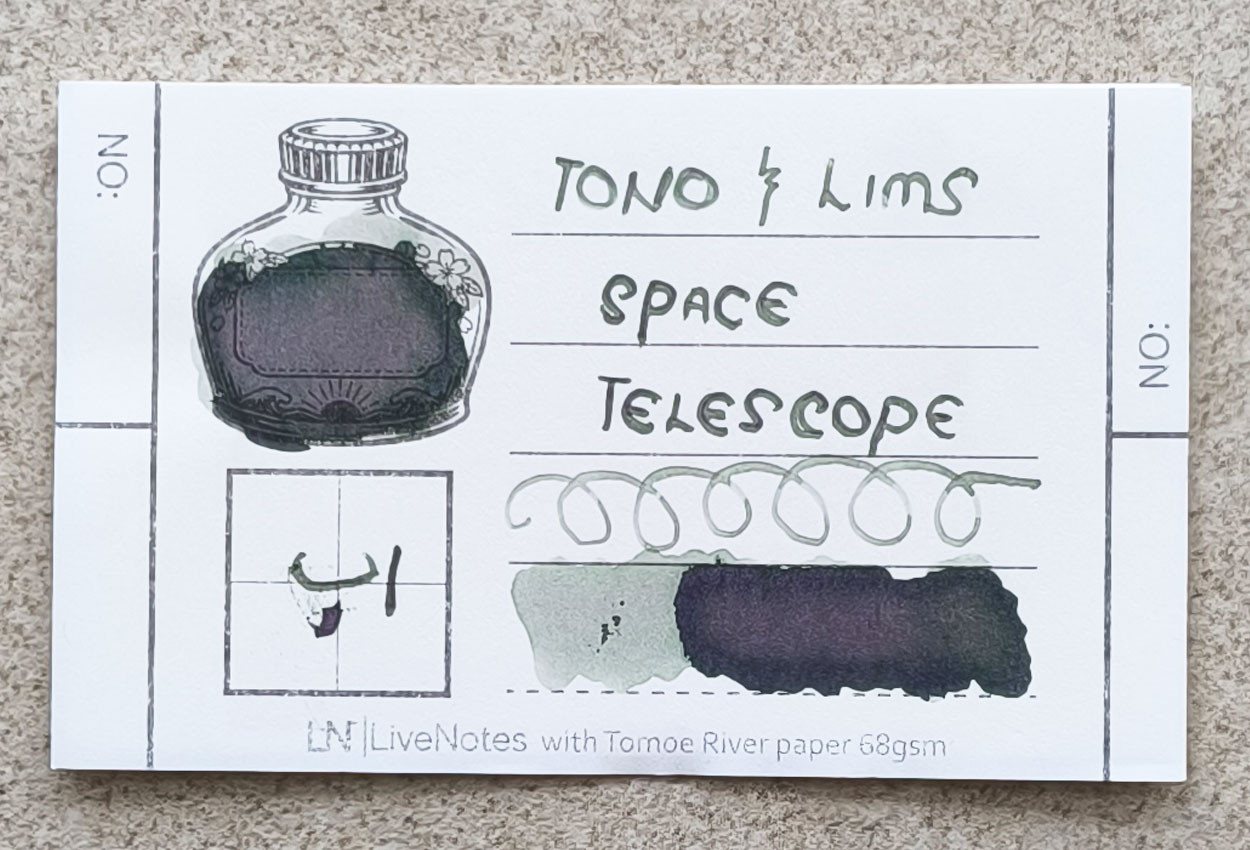 NO:
TONO & LIMS
SPACE
TELESCOPE
NO:
LN|LiveNotes with Tomoe River paper 68gsm